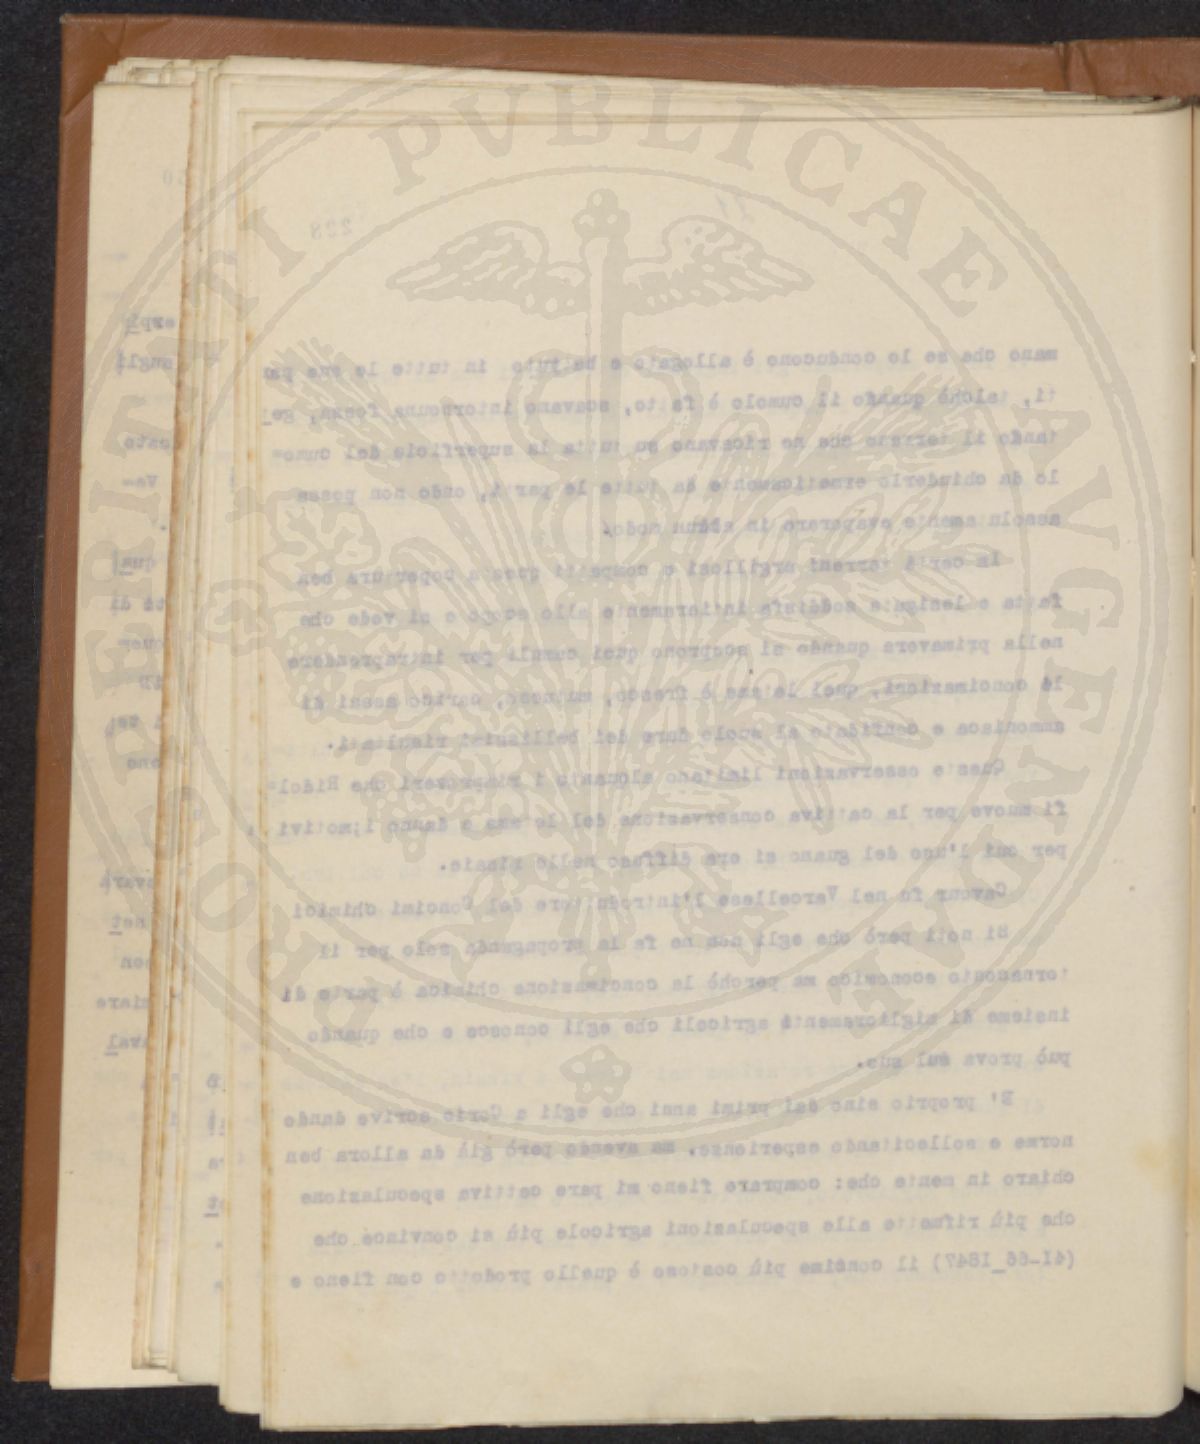 PROSPERITATI PVBLICAE AVGENDAE
228
mano che se lo conducono è allogato e battuto in tutte le sue par
ti, talchè quando il cumolo è fatto, scavano intornouna fossa, get
tando il terreno che ne ricavano su tutta la superficie del cumo=
lo da chiuderlo ermeticamente da tutte le parti, onde non possa
assolutamente evaporare in alcun modo.
In certi terreni argillosi e compatti questa copertura ben
fatta e levigata soddisfa intieramente allo scopo e si vede che
nella primavera quando si scoprono quei cumuli per intraprendere
le concimazioni, quel letame è fresco, carico assai di
ammoniaca e confidato al suolo dare dei bellissimi risultati.
Queste osservazioni limitano alquanto i rimproveri che Ridol=
fi muove per la cattiva conservazione del letame e danno i motivi
per cui l'uso del guano si era diffuso nelle risaie.
Cavour fu nel Vercellese l'introduttore del Concimi chimici
Si noti però che egli non ne fa la propaganda solo per il
tornaconto economico ma perchè la concimazione chimica è parte di
insieme di miglioramenti agricoli che egli conosce e che quando
può prova sul suo.
E' proprio sino dai primi anni che egli a Corio scrive dando
norme e sollecitando esperienze, ma avendo però già da allora ben
chiaro in mente che: comprare fieno mi pare cattiva speculazione
che più rifmette alle speculazioni agricole più si convince che
(41-66_1847) il concime più costoso è quello prodotto con fieno e